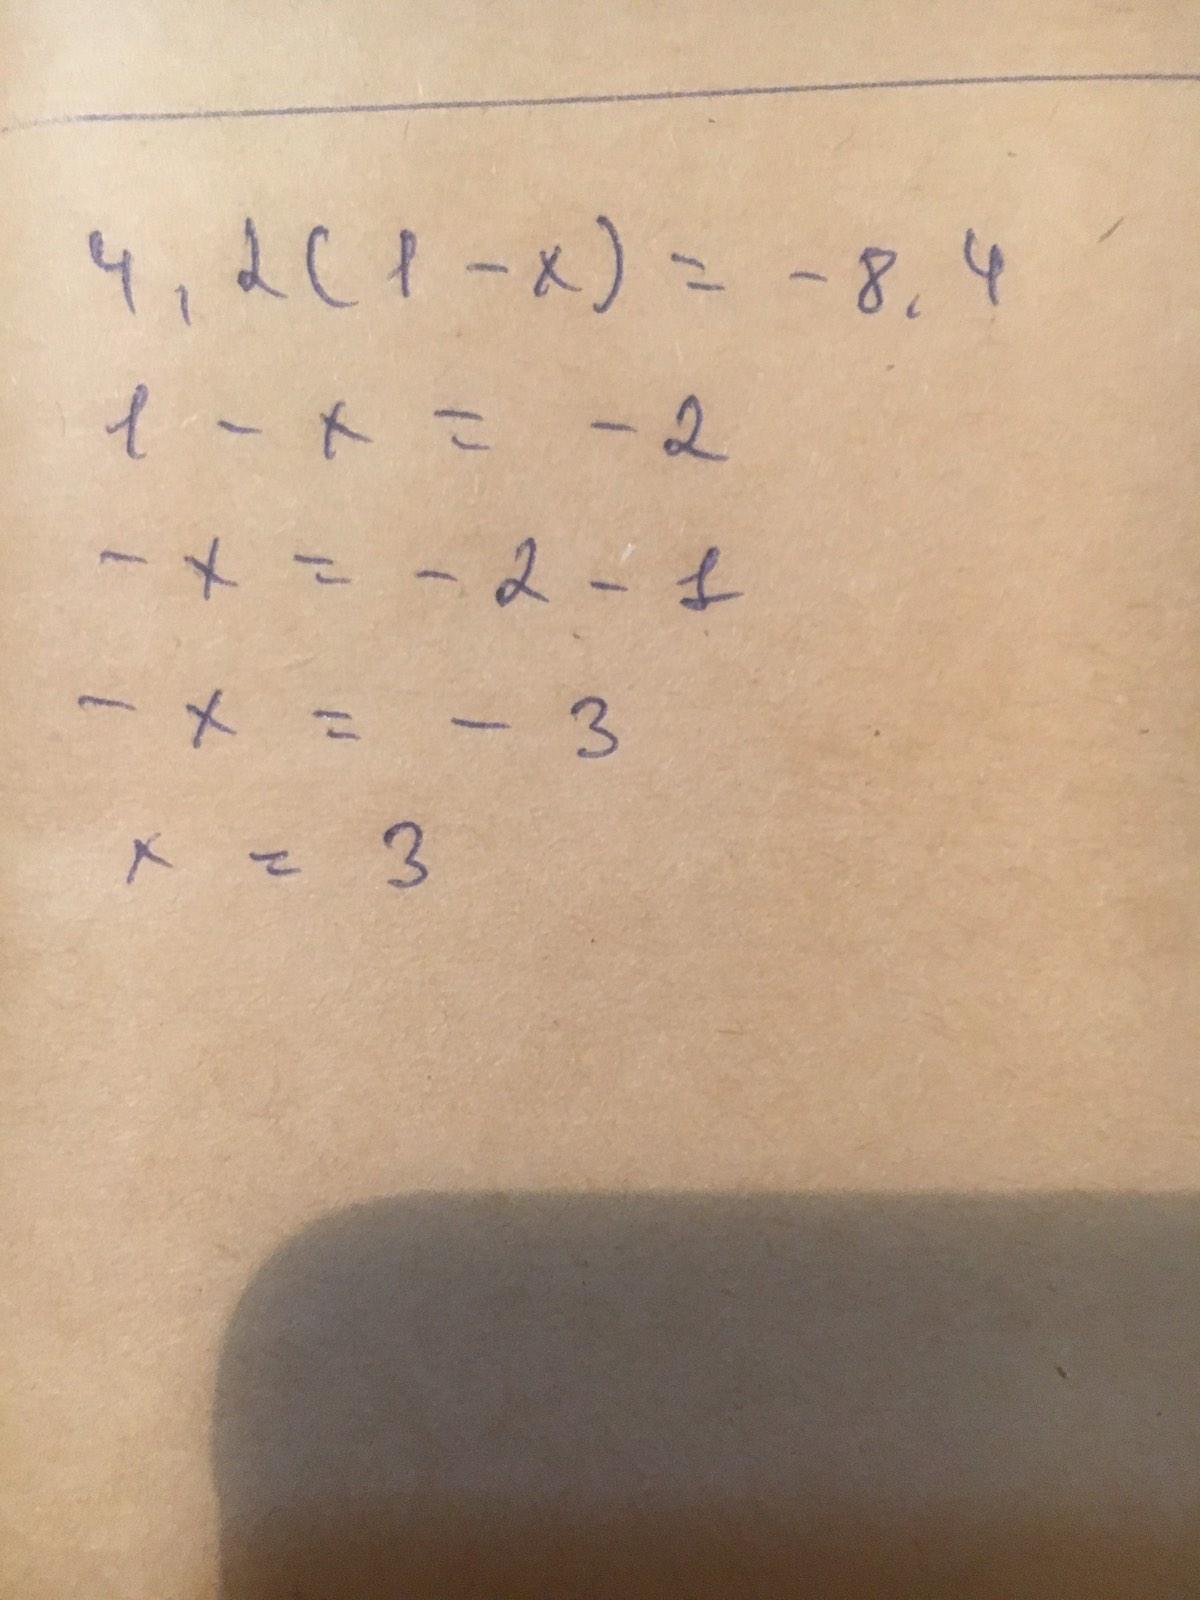 4,2(1-x) = -8,4
1 - x = -2
-x = -2-1
-x = -3
x = 3